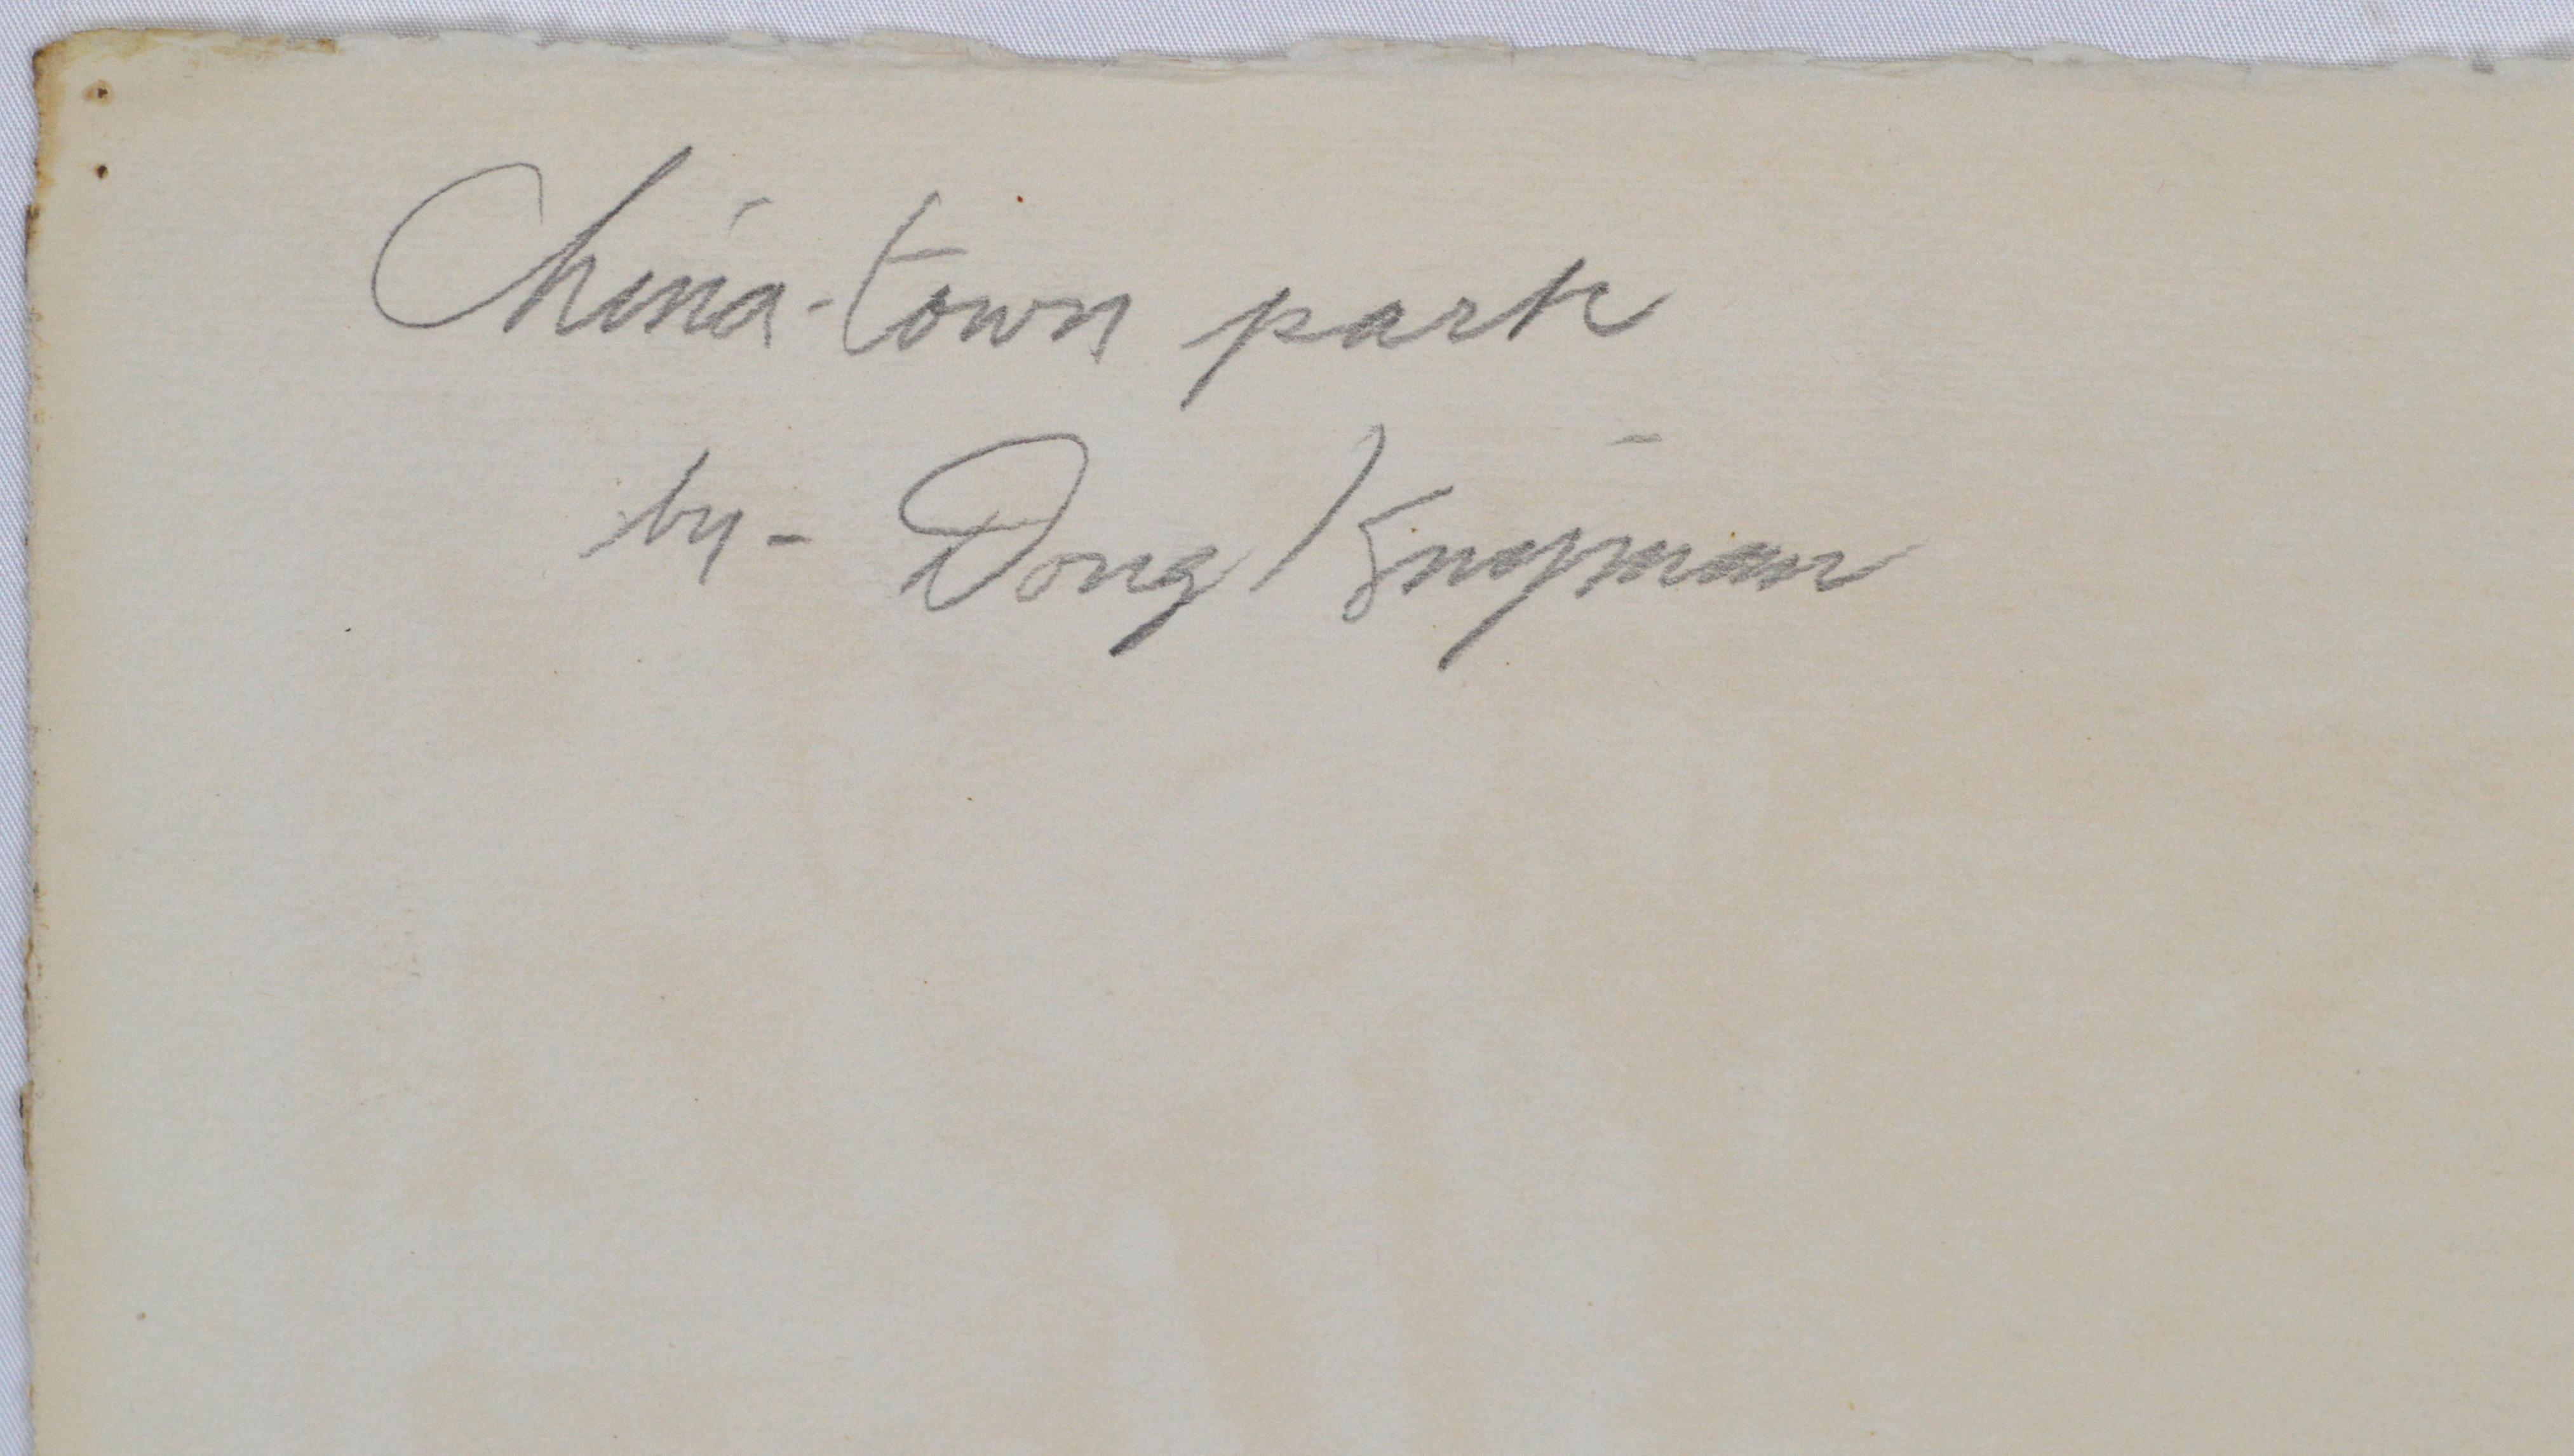 China-town park
by- Dong Kingman